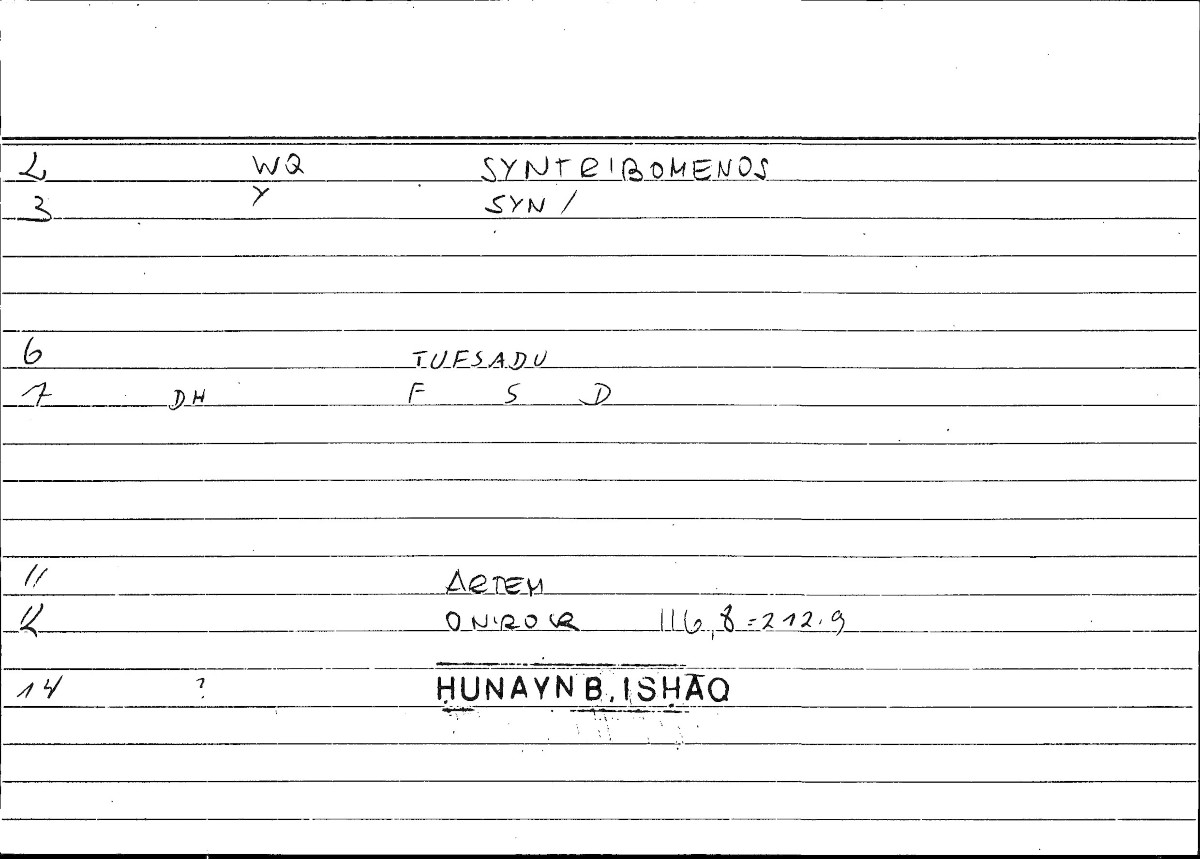 2 WQ SYNTRIBOMENOS
3 Y SYN /
6 TUFSADU
7 DH F S D
11 ARTEM
12 ONIROCR 116,8=212.9
14 ? ḤUNAYN B. ISḤĀQ